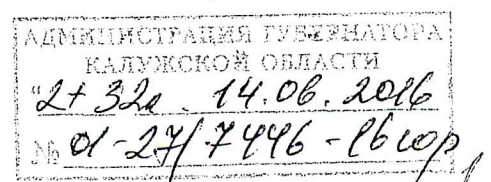 АДМИНИСТРАЦИЯ ГУБЕРНАТОРА
КАЛУЖСКОЙ ОБЛАСТИ
"2+32л. 14.06.2016
№ 01-27/7446-16 кор